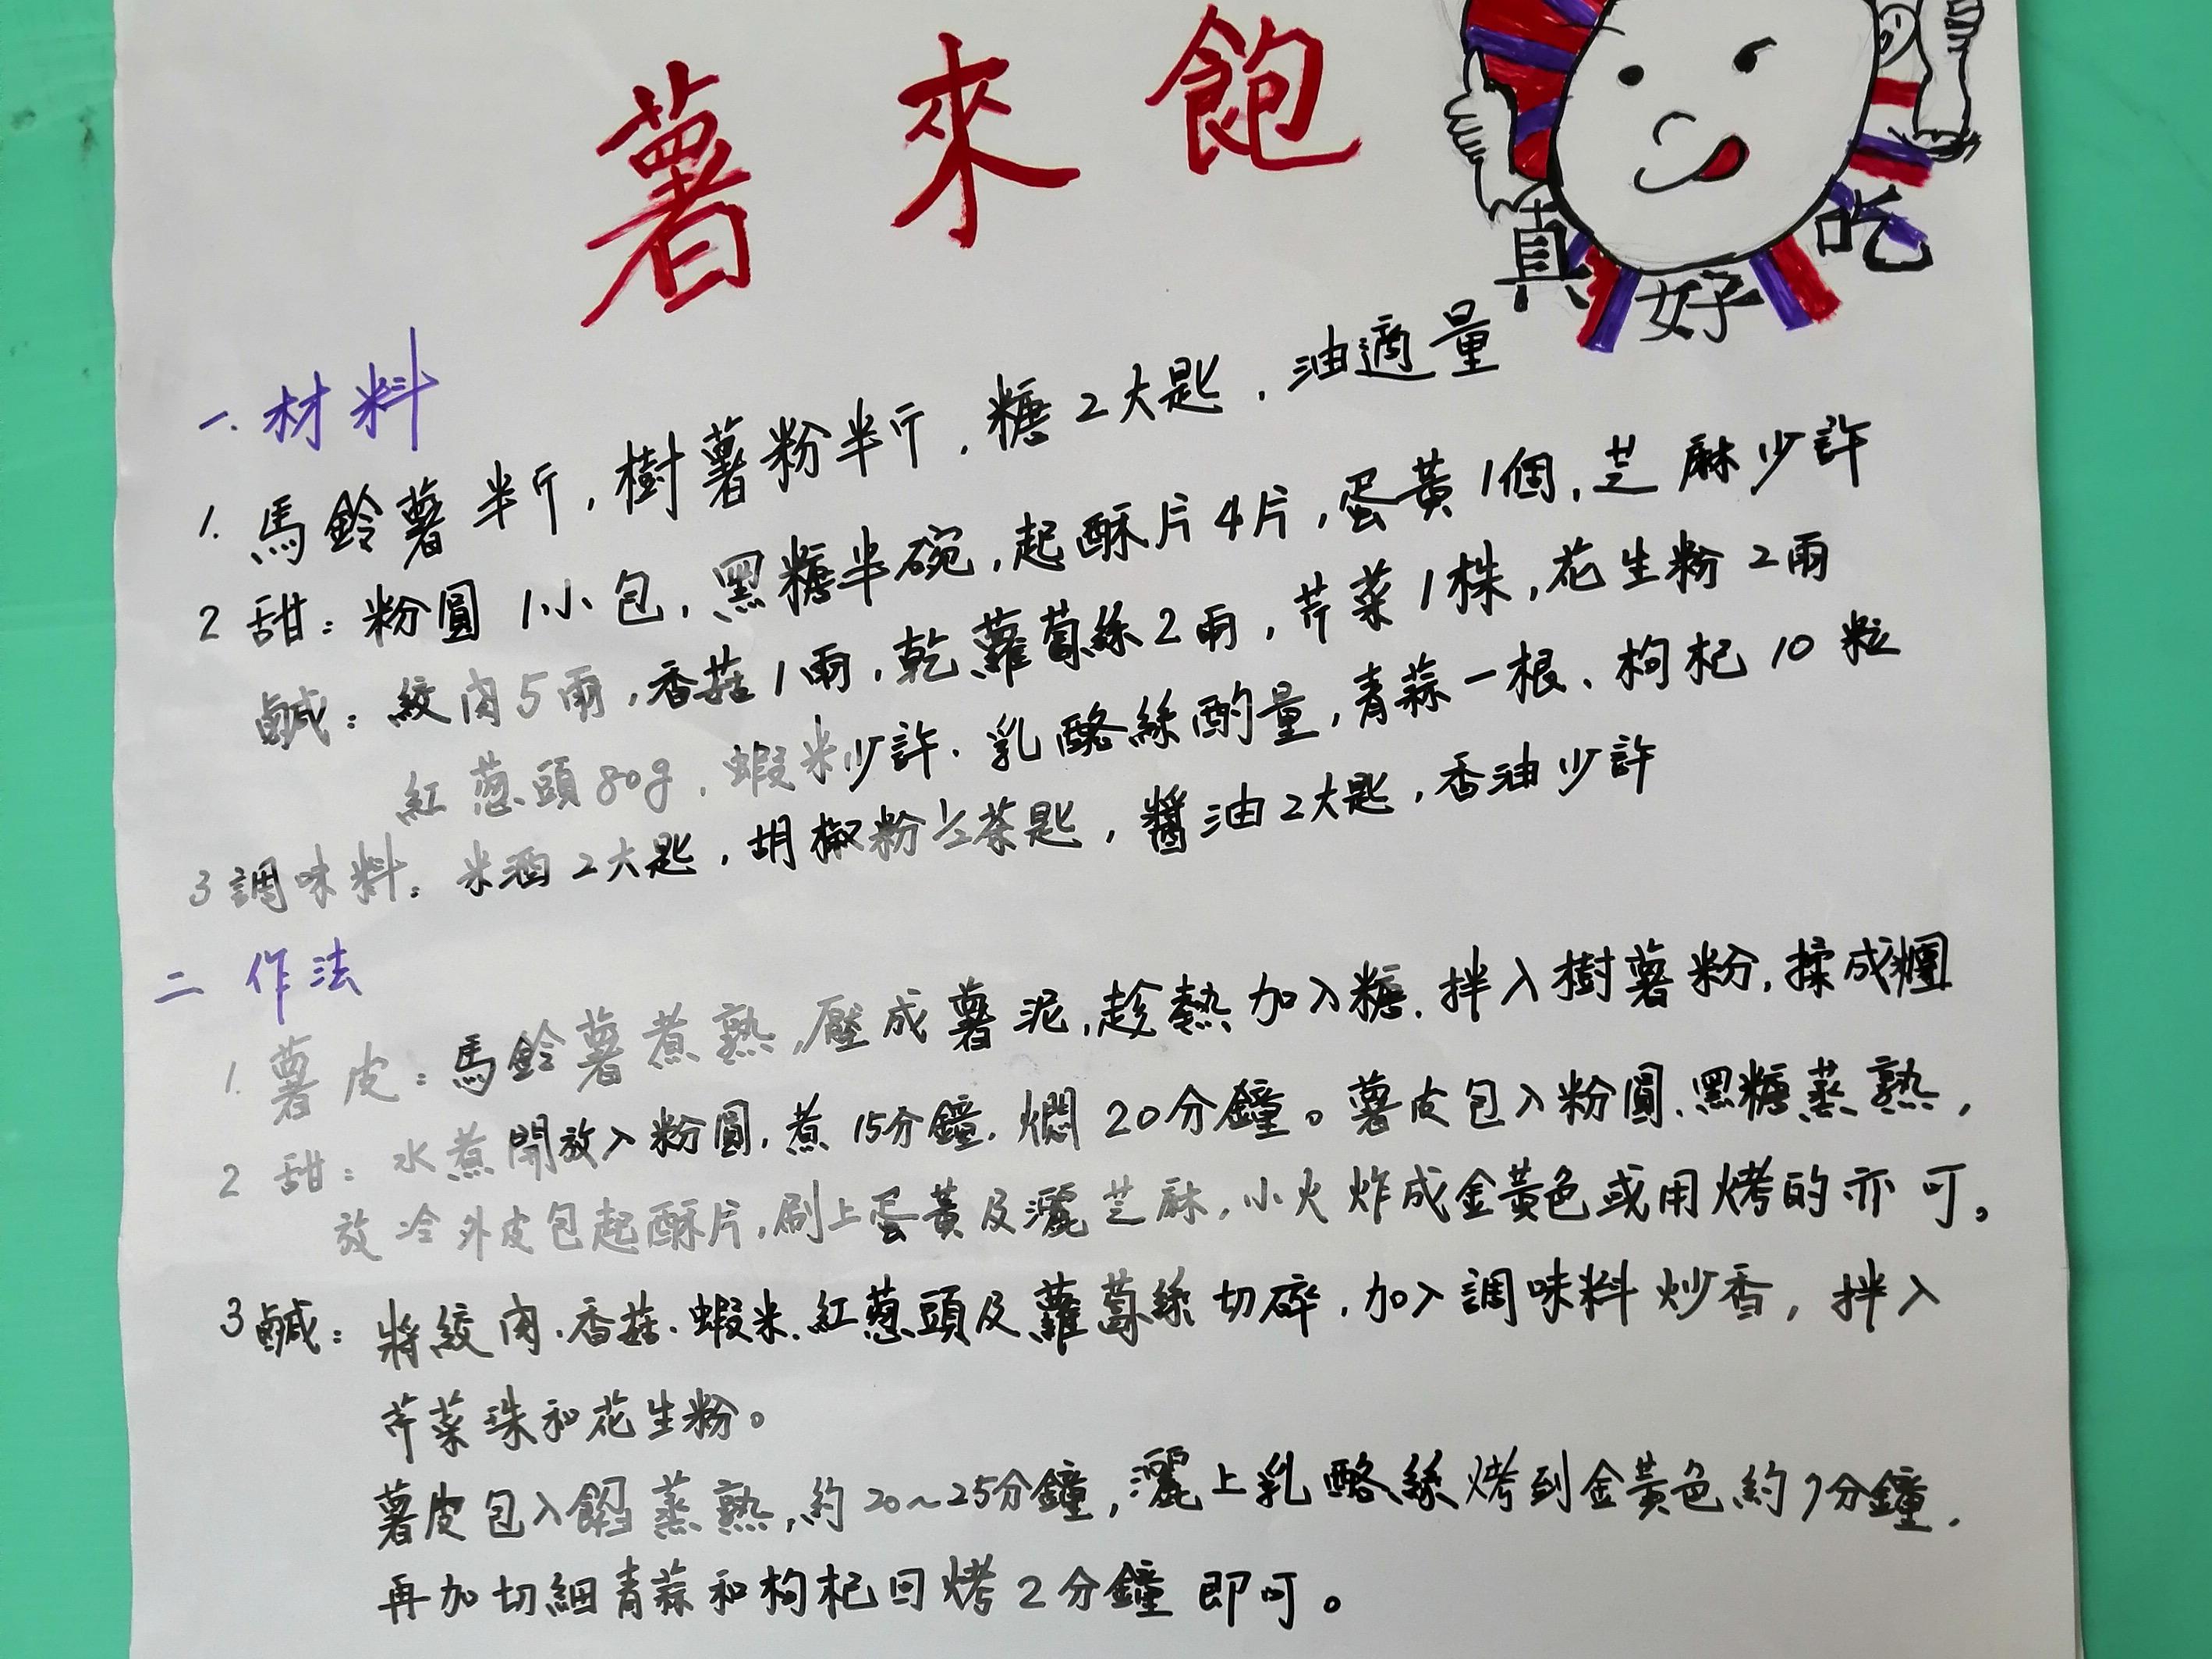 薯來飽
真好吃
一.材料
1.馬鈴薯半斤,樹薯粉半斤,糖2大匙.油適量
2甜:粉圓1小包,黑糖半碗,起酥片4片,蛋黃1個,芝麻少許
鹹:絞肉5兩,香菇1兩,乾蘿蔔絲2兩,芹菜1株,花生粉2兩
紅蔥頭80g.蝦米少許.乳酪絲酌量,青蒜一根、枸杞10粒
3調味料:米酒2大匙,胡椒粉½茶匙,醬油2大匙,香油少許
二作法
1.薯皮:馬鈴薯煮熟,壓成薯泥,趁熱加入糖.拌入樹薯粉,揉成糰
2甜:水煮開放入粉圓,煮15分鐘.燜20分鐘。薯皮包入粉圓.黑糖蒸熟,
放冷外皮包起酥片,刷上蛋黃及灑芝麻,小火炸成金黃色或用烤的亦可。
3鹹:將絞肉.香菇.蝦米.紅蔥頭及蘿蔔絲切碎,加入調味料炒香,拌入
芹菜珠和花生粉。
薯皮包入餡蒸熟,約20~25分鐘,灑上乳酪絲烤到金黃色約7分鐘,
再加切細青蒜和枸杞回烤2分鐘即可。